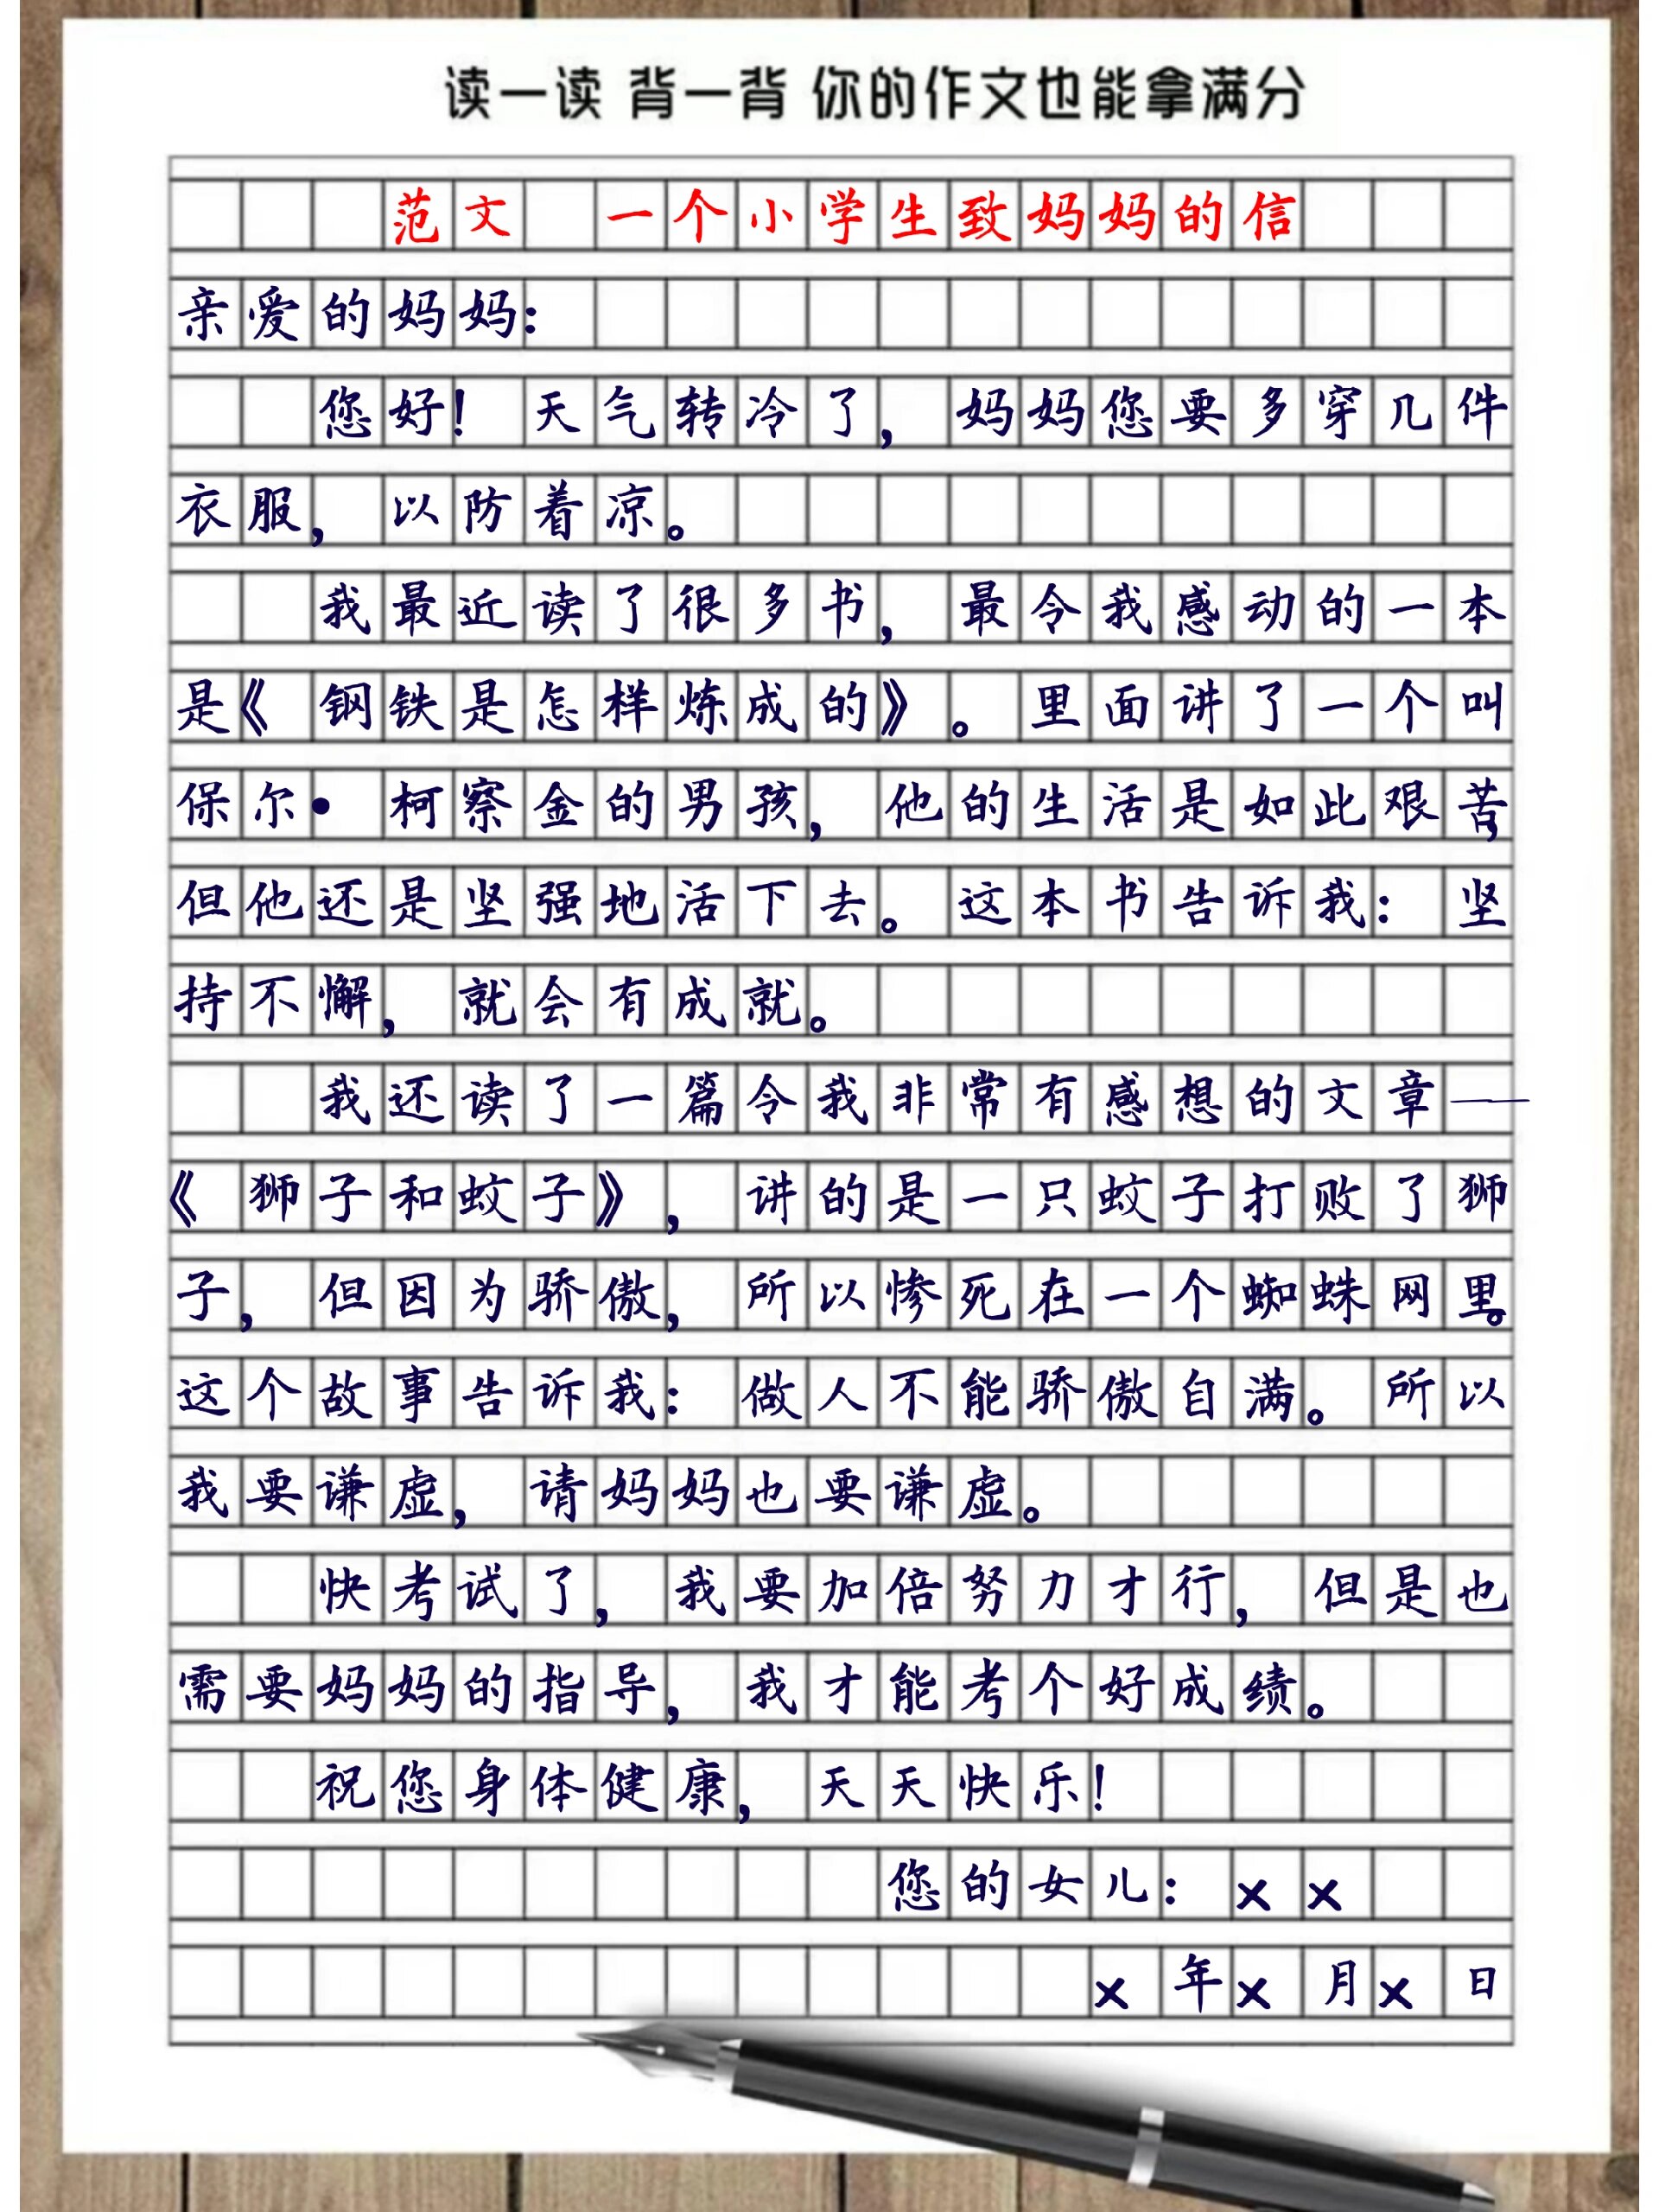 读一读 背一背 你的作文也能拿满分
范文 一个小学生致妈妈的信
亲爱的妈妈:
您好! 天气转冷了, 妈妈您要多穿几件
衣服, 以防着凉。
我最近读了很多书, 最令我感动的一本
是《 钢铁是怎样炼成的》 。 里面讲了一个叫
保尔• 柯察金的男孩, 他的生活是如此艰苦,
但他还是坚强地活下去。 这本书告诉我: 坚
持不懈, 就会有成就。
我还读了一篇令我非常有感想的文章——
《 狮子和蚊子》 , 讲的是一只蚊子打败了狮
子, 但因为骄傲, 所以惨死在一个蜘蛛网里。
这个故事告诉我: 做人不能骄傲自满。 所以
我要谦虚, 请妈妈也要谦虚。
快考试了, 我要加倍努力才行, 但是也
需要妈妈的指导, 我才能考个好成绩。
祝您身体健康, 天天快乐!
您的女儿: ××
×年×月×日